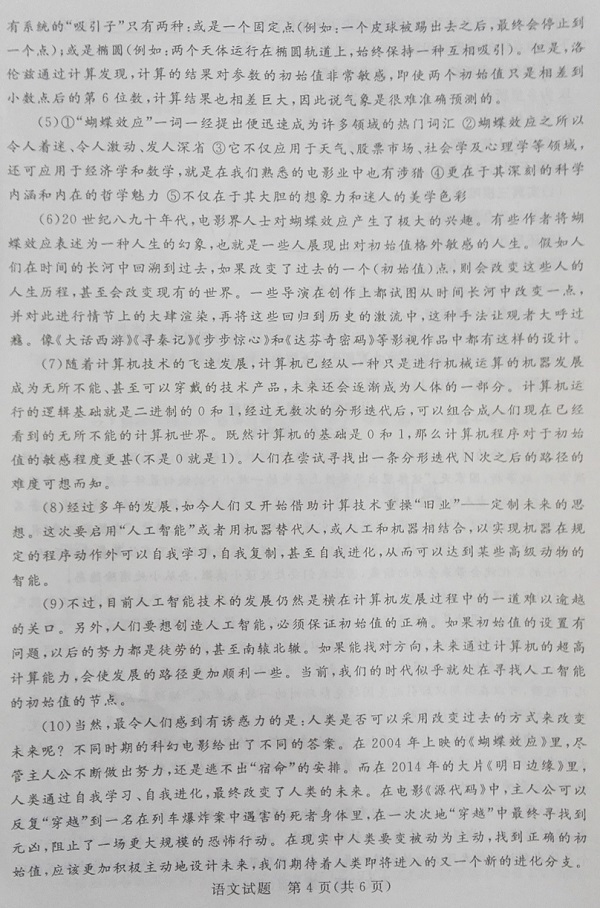 有系统的“吸引子”只有两种:或是一个固定点(例如:一个皮球被踢出去之后,最终会停止到
一个点);或是椭圆(例如:两个天体运行在椭圆轨道上,始终保持一种互相吸引)。但是,洛
伦兹通过计算发现,计算的结果对参数的初始值非常敏感,即使两个初始值只是相差到
小数点后的第6位数,计算结果也相差巨大,因此说气象是很难准确预测的。
(5)①“蝴蝶效应”一词一经提出便迅速成为许多领域的热门词汇 ②蝴蝶效应之所以
令人着迷、令人激动、发人深省 ③它不仅应用于天气、股票市场、社会学及心理学等领域,
还可应用于经济学和数学,就是在我们熟悉的电影业中也有涉猎 ④更在于其深刻的科学
内涵和内在的哲学魅力 ⑤不仅在于其大胆的想象力和迷人的美学色彩
(6)20世纪八九十年代,电影界人士对蝴蝶效应产生了极大的兴趣。有些作者将蝴
蝶效应表述为一种人生的幻象,也就是一些人展现出对初始值格外敏感的人生。假如人
们在时间的长河中回溯到过去,如果改变了过去的一个(初始值)点,则会改变这些人的
人生历程,甚至会改变现有的世界。一些导演在创作上都试图从时间长河中改变一点,
并对此进行情节上的大肆渲染,再将这些回归到历史的激流中,这种手法让观者大呼过
瘾。像《大话西游》《寻秦记》《步步惊心》和《达芬奇密码》等影视作品中都有这样的设计。
(7)随着计算机技术的飞速发展,计算机已经从一种只是进行机械运算的机器发展
成为无所不能、甚至可以穿戴的技术产品,未来还会逐渐成为人体的一部分。计算机运
行的逻辑基础就是二进制的0和1,经过无数次的分形迭代后,可以组合成人们现在已经
看到的无所不能的计算机世界。既然计算机的基础是0和1,那么计算机程序对于初始
值的敏感程度更甚(不是0就是1)。人们在尝试寻找出一条分形迭代N次之后的路径的
难度可想而知。
(8)经过多年的发展,如今人们又开始借助计算技术重操“旧业”——定制未来的思
想。这次要启用“人工智能”或者用机器替代人,或人工和机器相结合,以实现机器在规
定的程序动作外可以自我学习,自我复制,甚至自我进化,从而可以达到某些高级动物的
智能。
(9)不过,目前人工智能技术的发展仍然是横在计算机发展过程中的一道难以逾越
的关口。另外,人们要想创造人工智能,必须保证初始值的正确。如果初始值的设置有
问题,以后的努力都是徒劳的,甚至南辕北辙。如果能找对方向,未来通过计算机的超高
计算能力,会使发展的路径更加顺利一些。当前,我们的时代似乎就处在寻找人工智能
的初始值的节点。
(10)当然,最令人们感到有诱惑力的是:人类是否可以采用改变过去的方式来改变
未来呢?不同时期的科幻电影给出了不同的答案。在2004年上映的《蝴蝶效应》里,尽
管主人公不断做出努力,还是逃不出“宿命”的安排。而在2014年的大片《明日边缘》里,
人类通过自我学习、自我进化,最终改变了人类的未来。在电影《源代码》中,主人公可以
反复“穿越”到一名在列车爆炸案中遇害的死者身体里,在一次次地“穿越”中最终寻找到
元凶,阻止了一场更大规模的恐怖行动。在现实中人类要变被动为主动,找到正确的初
始值,应该更加积极主动地设计未来,我们期待着人类即将进入的又一个新的进化分支。
语文试题 第4页(共6页)